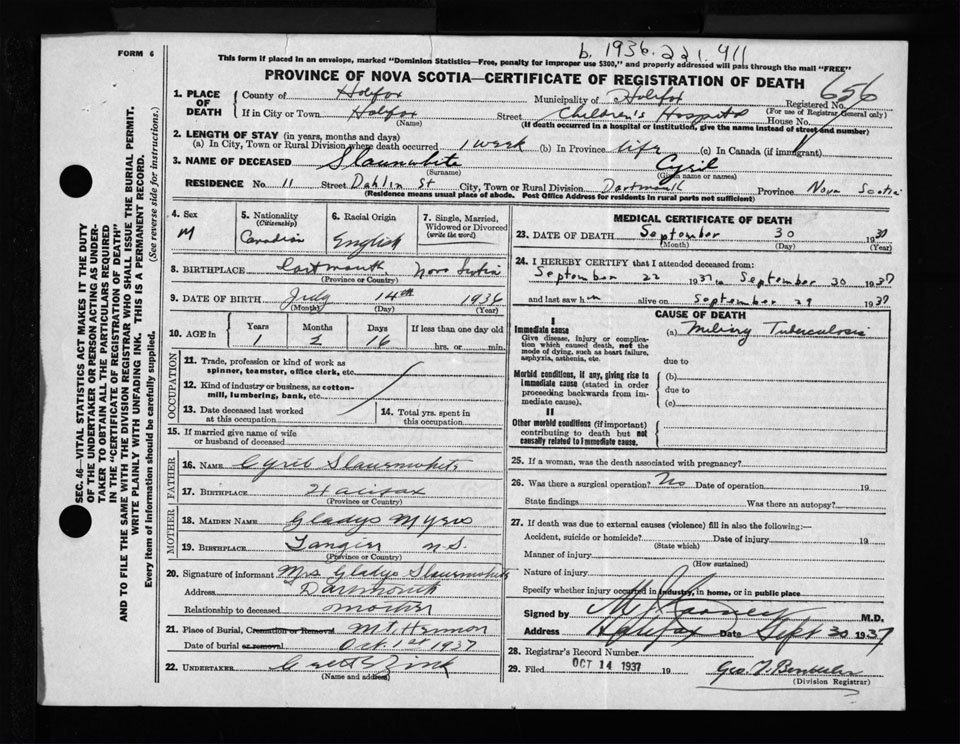 b. 1936. 221.911
FORM 6
This form if placed in an envelope, marked "Dominion Statistics—Free, penalty for improper use $300," and properly addressed will pass through the mail "FREE"
PROVINCE OF NOVA SCOTIA—CERTIFICATE OF REGISTRATION OF DEATH
656
1. PLACE OF DEATH
County of Halifax Municipality of Halifax Registered No.
(For use of Registrar General only)
If in City or Town Halifax Street Children's Hospital House No.
(Name) (If death occurred in a hospital or institution, give the name instead of street and number)
2. LENGTH OF STAY (in years, months and days)
(a) In City, Town or Rural Division where death occurred 1 week (b) In Province life (c) In Canada (if immigrant)
3. NAME OF DECEASED Slaunwhite Cyril
(Surname) (Given name or names)
RESIDENCE No. 11 Street Dahlia St City, Town or Rural Division Dartmouth Province Nova Scotia
(Residence means usual place of abode. Post Office Address for residents in rural parts not sufficient)
4. Sex
M
5. Nationality
(Citizenship)
Canadian
6. Racial Origin
English
7. Single, Married, Widowed or Divorced
(write the word)
8. BIRTHPLACE Dartmouth Nova Scotia
(Province or Country)
9. DATE OF BIRTH July 14th 1936
(Month) (Day) (Year)
10. AGE in
Years Months Days If less than one day old
1 2 16 hrs. or min.
OCCUPATION
11. Trade, profession or kind of work as
spinner, teamster, office clerk, etc.
12. Kind of industry or business, as cotton-
mill, lumbering, bank, etc.
13. Date deceased last worked
at this occupation
14. Total yrs. spent in
this occupation
15. If married give name of wife
or husband of deceased
FATHER
16. NAME Cyril Slaunwhite
17. BIRTHPLACE Halifax
(Province or Country)
MOTHER
18. MAIDEN NAME Gladys Myers
19. BIRTHPLACE Tangier N.S.
(Province or Country)
20. Signature of informant Mrs Gladys Slaunwhite
Address Dartmouth
Relationship to deceased mother
21. Place of Burial, Cremation or Removal Mt Hermon
Date of burial or removal Oct 1st 1937
22. UNDERTAKER Zink
(Name and address)
MEDICAL CERTIFICATE OF DEATH
23. DATE OF DEATH September 30 1930
(Month) (Day) (Year)
24. I HEREBY CERTIFY that I attended deceased from:
September 22 1937 to September 30 1937
and last saw him alive on September 29 1937
CAUSE OF DEATH
I
Immediate cause
Give disease, injury or complica-
tion which caused death, not the
mode of dying, such as heart failure,
asphyxia, asthenia, etc.
(a) Miliary Tuberculosis
due to
Morbid conditions, if any, giving rise to
immediate cause (stated in order
proceeding backwards from im-
mediate cause).
(b)
due to
(c)
II
Other morbid conditions (if important)
contributing to death but not
causally related to immediate cause.
25. If a woman, was the death associated with pregnancy?
26. Was there a surgical operation? No Date of operation 19
State findings Was there an autopsy?
27. If death was due to external causes (violence) fill in also the following:—
Accident, suicide or homicide? Date of injury 19
(State which)
Manner of injury
(How sustained)
Nature of injury
Specify whether injury occurred in industry, in home, or in public place
Signed by M.D.
Address Halifax Date Sept 30 1937
28. Registrar's Record Number
29. Filed OCT 14 1937 19
(Division Registrar)
SEC. 46—VITAL STATISTICS ACT MAKES IT THE DUTY
OF THE UNDERTAKER OR PERSON ACTING AS UNDER-
TAKER TO OBTAIN ALL THE PARTICULARS REQUIRED
IN THE "CERTIFICATE OF REGISTRATION OF DEATH"
AND TO FILE THE SAME WITH THE DIVISION REGISTRAR WHO SHALL ISSUE THE BURIAL PERMIT.
WRITE PLAINLY WITH UNFADING INK. THIS IS A PERMANENT RECORD.
Every item of information should be carefully supplied. (See reverse side for instructions.)